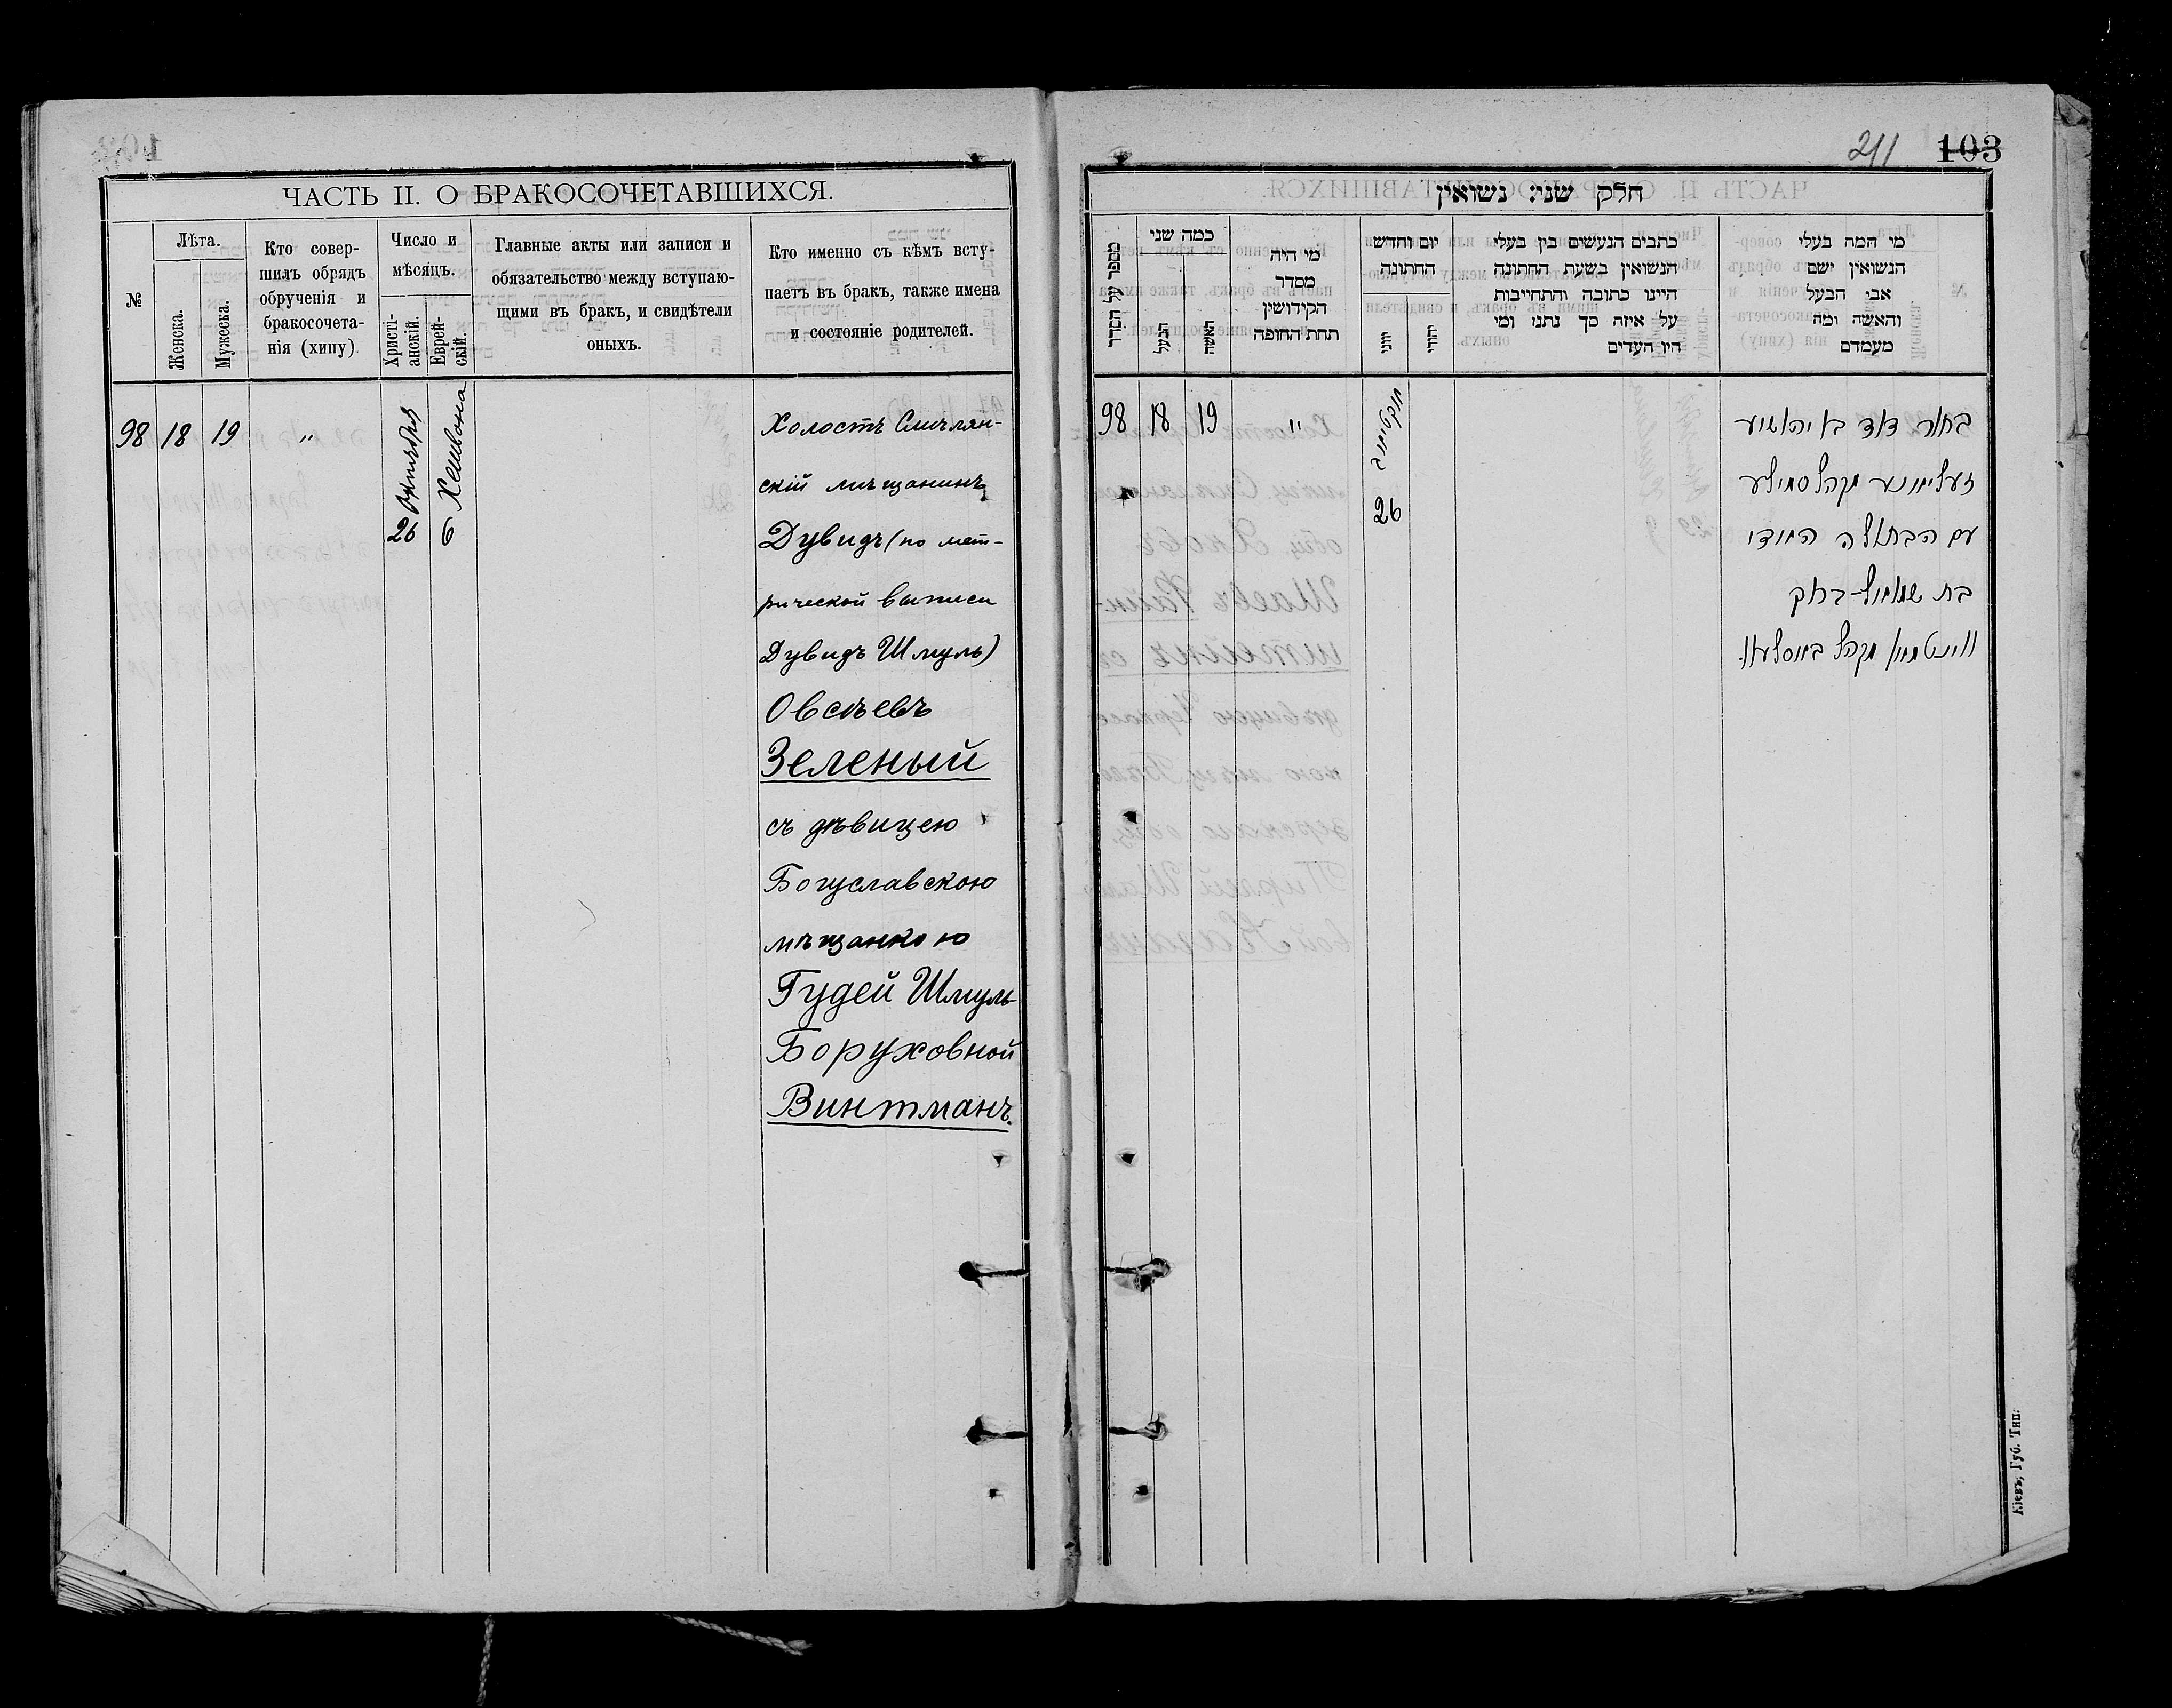 ЧАСТЬ II. О БРАКОСОЧЕТАВШИХСЯ.
№
Лѣта.
Женска.
Мужеска.
Кто совер-
шилъ обрядъ
обрученія и
бракосочета-
нія (хипу).
Число и
мѣсяцъ.
Христі-
анскій.
Еврей-
скій.
Главные акты или записи и
обязательство между вступаю-
щими въ бракъ, и свидѣтели
оныхъ.
Кто именно съ кѣмъ всту-
паетъ въ бракъ, также имена
и состояніе родителей.
98 18 19 "
26 Октября
6 Хешвона
Холостъ Смѣлян-
скій мѣщанинъ
Дувидъ (по мет-
рической выписи
Дувидъ Шмуль)
Овсѣевъ
Зеленый
съ дѣвицею
Богуславскою
мѣщанкою
Гудей Шмуль-
Боруховной
Винтманъ.
211 103
חלק שני: נשואין
מספר על הסדר
כמה שני
הבעל
האשה
מי היה
מסדר
הקידושין
תחת החופה
יום וחדש
החתונה
יווני
יהודי
כתבים הנעשים בין בעלי
הנשואין בשעת החתונה
היינו כתובה והתחייבות
על איזה סך נתנו ומי
היו העדים
מי המה בעלי
הנשואין ושם
אבי הבעל
והאשה ומה
מעמדם
98 18 19 "
26
בחור דוד בן יהושיע
מקהל סמילע
עם הבתולה הגודי
בת שמואל-ברוך
ווינטמאן מקהל
Кіевъ, Губ. Тип.